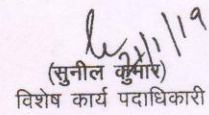 21/1/19
(सुनील कुमार)
विशेष कार्य पदाधिकारी